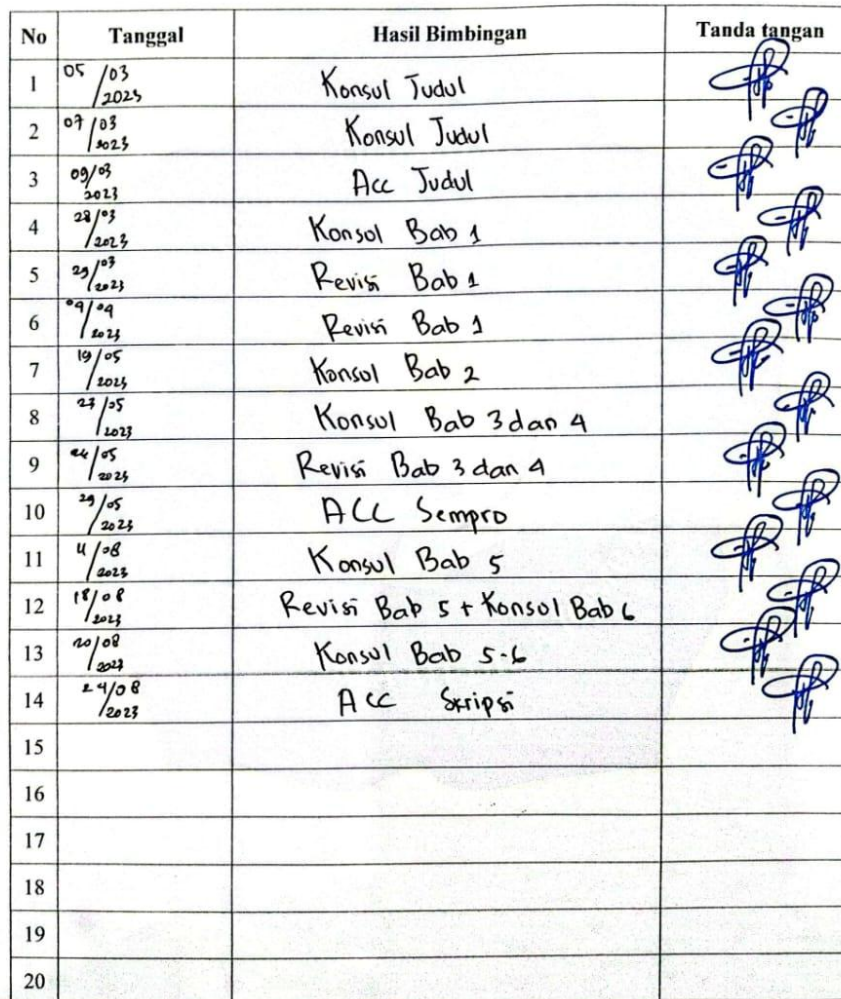 No Tanggal Hasil Bimbingan Tanda tangan
1 05/03 2023 Konsul Judul
2 07/03 2023 Konsul Judul
3 09/03 2023 Acc Judul
4 28/03 2023 Konsol Bab 1
5 29/03 2023 Revisi Bab 1
6 04/04 2023 Revisi Bab 1
7 19/05 2023 Konsul Bab 2
8 23/05 2023 Konsul Bab 3 dan 4
9 24/05 2023 Revisi Bab 3 dan 4
10 29/05 2023 ACC Sempro
11 11/08 2023 Konsul Bab 5
12 18/08 2023 Revisi Bab 5 + Konsol Bab 6
13 20/08 2023 Konsul Bab 5-6
14 24/08 2023 ACC Skripsi
15
16
17
18
19
20